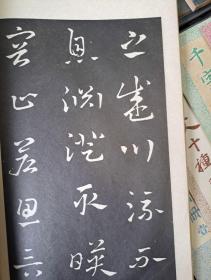 之盛川流不
息淵澄取暎
容止若思言
千字
文十種